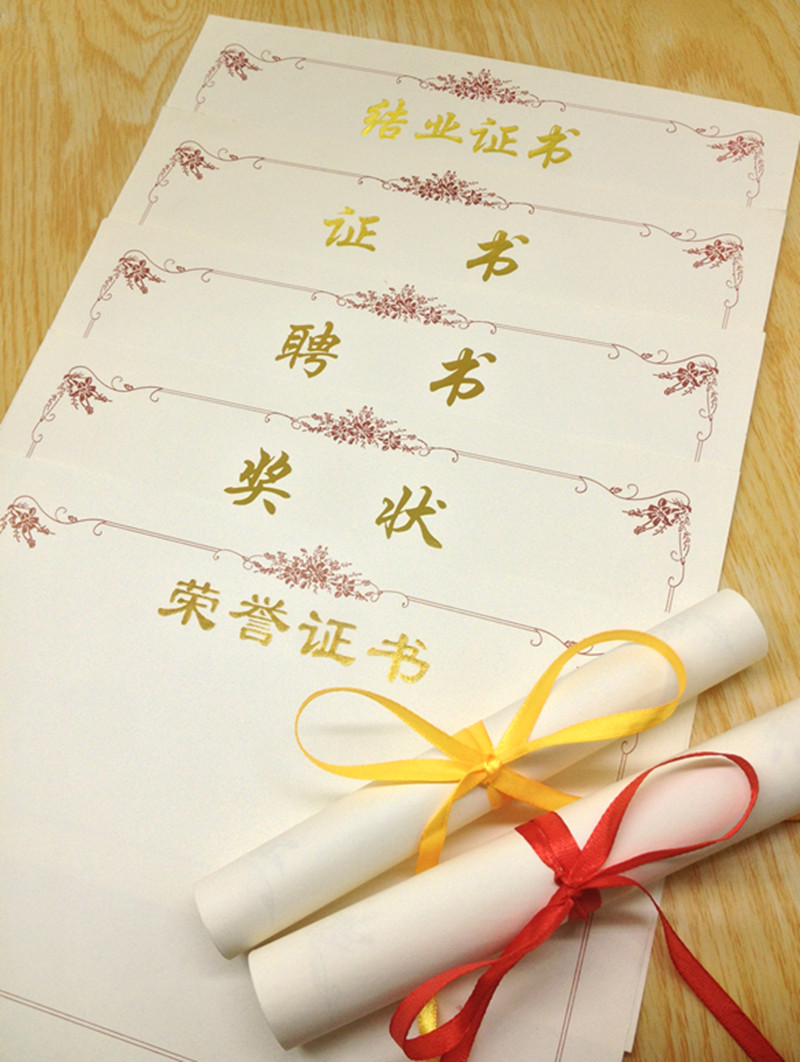 结业证书
证书
聘书
奖状
荣誉证书